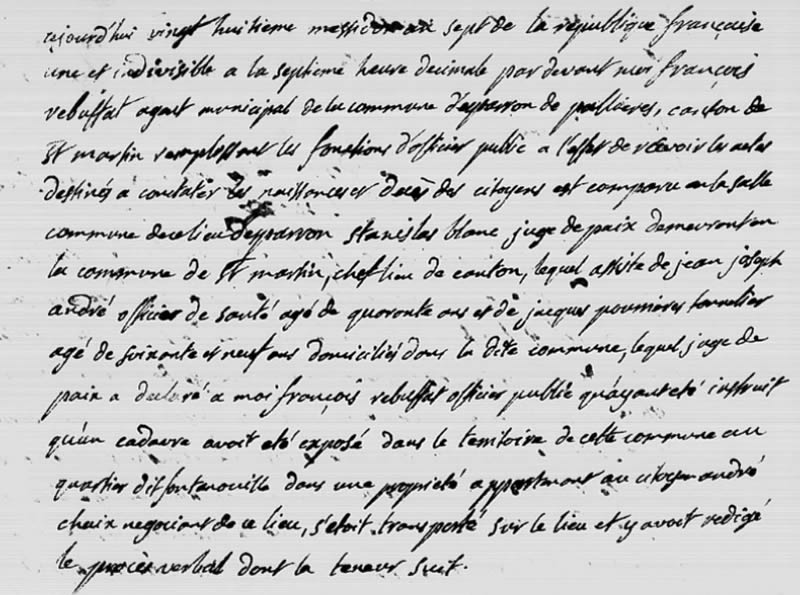 aujourd'hui vingt huitieme messidor an sept de la republique française
une et indivisible a la septieme heure decimale par devant moi françois
rebuffat agent municipal de la commune d'esparron de pallieres, canton de
St martin remplissant les fonctions d'officier public a l'effet de recevoir les actes
destinés a constater les naissances et decès des citoyens est comparu en la salle
commune de ce lieu d'esparron stanislas blanc juge de paix demeurant en
la commune de St martin, chef lieu de canton, lequel assisté de jean joseph
andré officier de santé agé de quarante ans et de jacques pourrieres tonnelier
agé de soixante et neuf ans domiciliés dans la dite commune, lequel juge de
paix a declaré a moi françois rebuffat officier public qu'ayant eté instruit
qu'un cadavre avoit eté exposé dans le territoire de cette commune au
quartier dit fontanouille dans une proprieté appartenant au citoyen andré
chaix negociant de ce lieu, s'etoit transporté sur le lieu et y avoit redigé
le procès verbal dont la teneur suit.